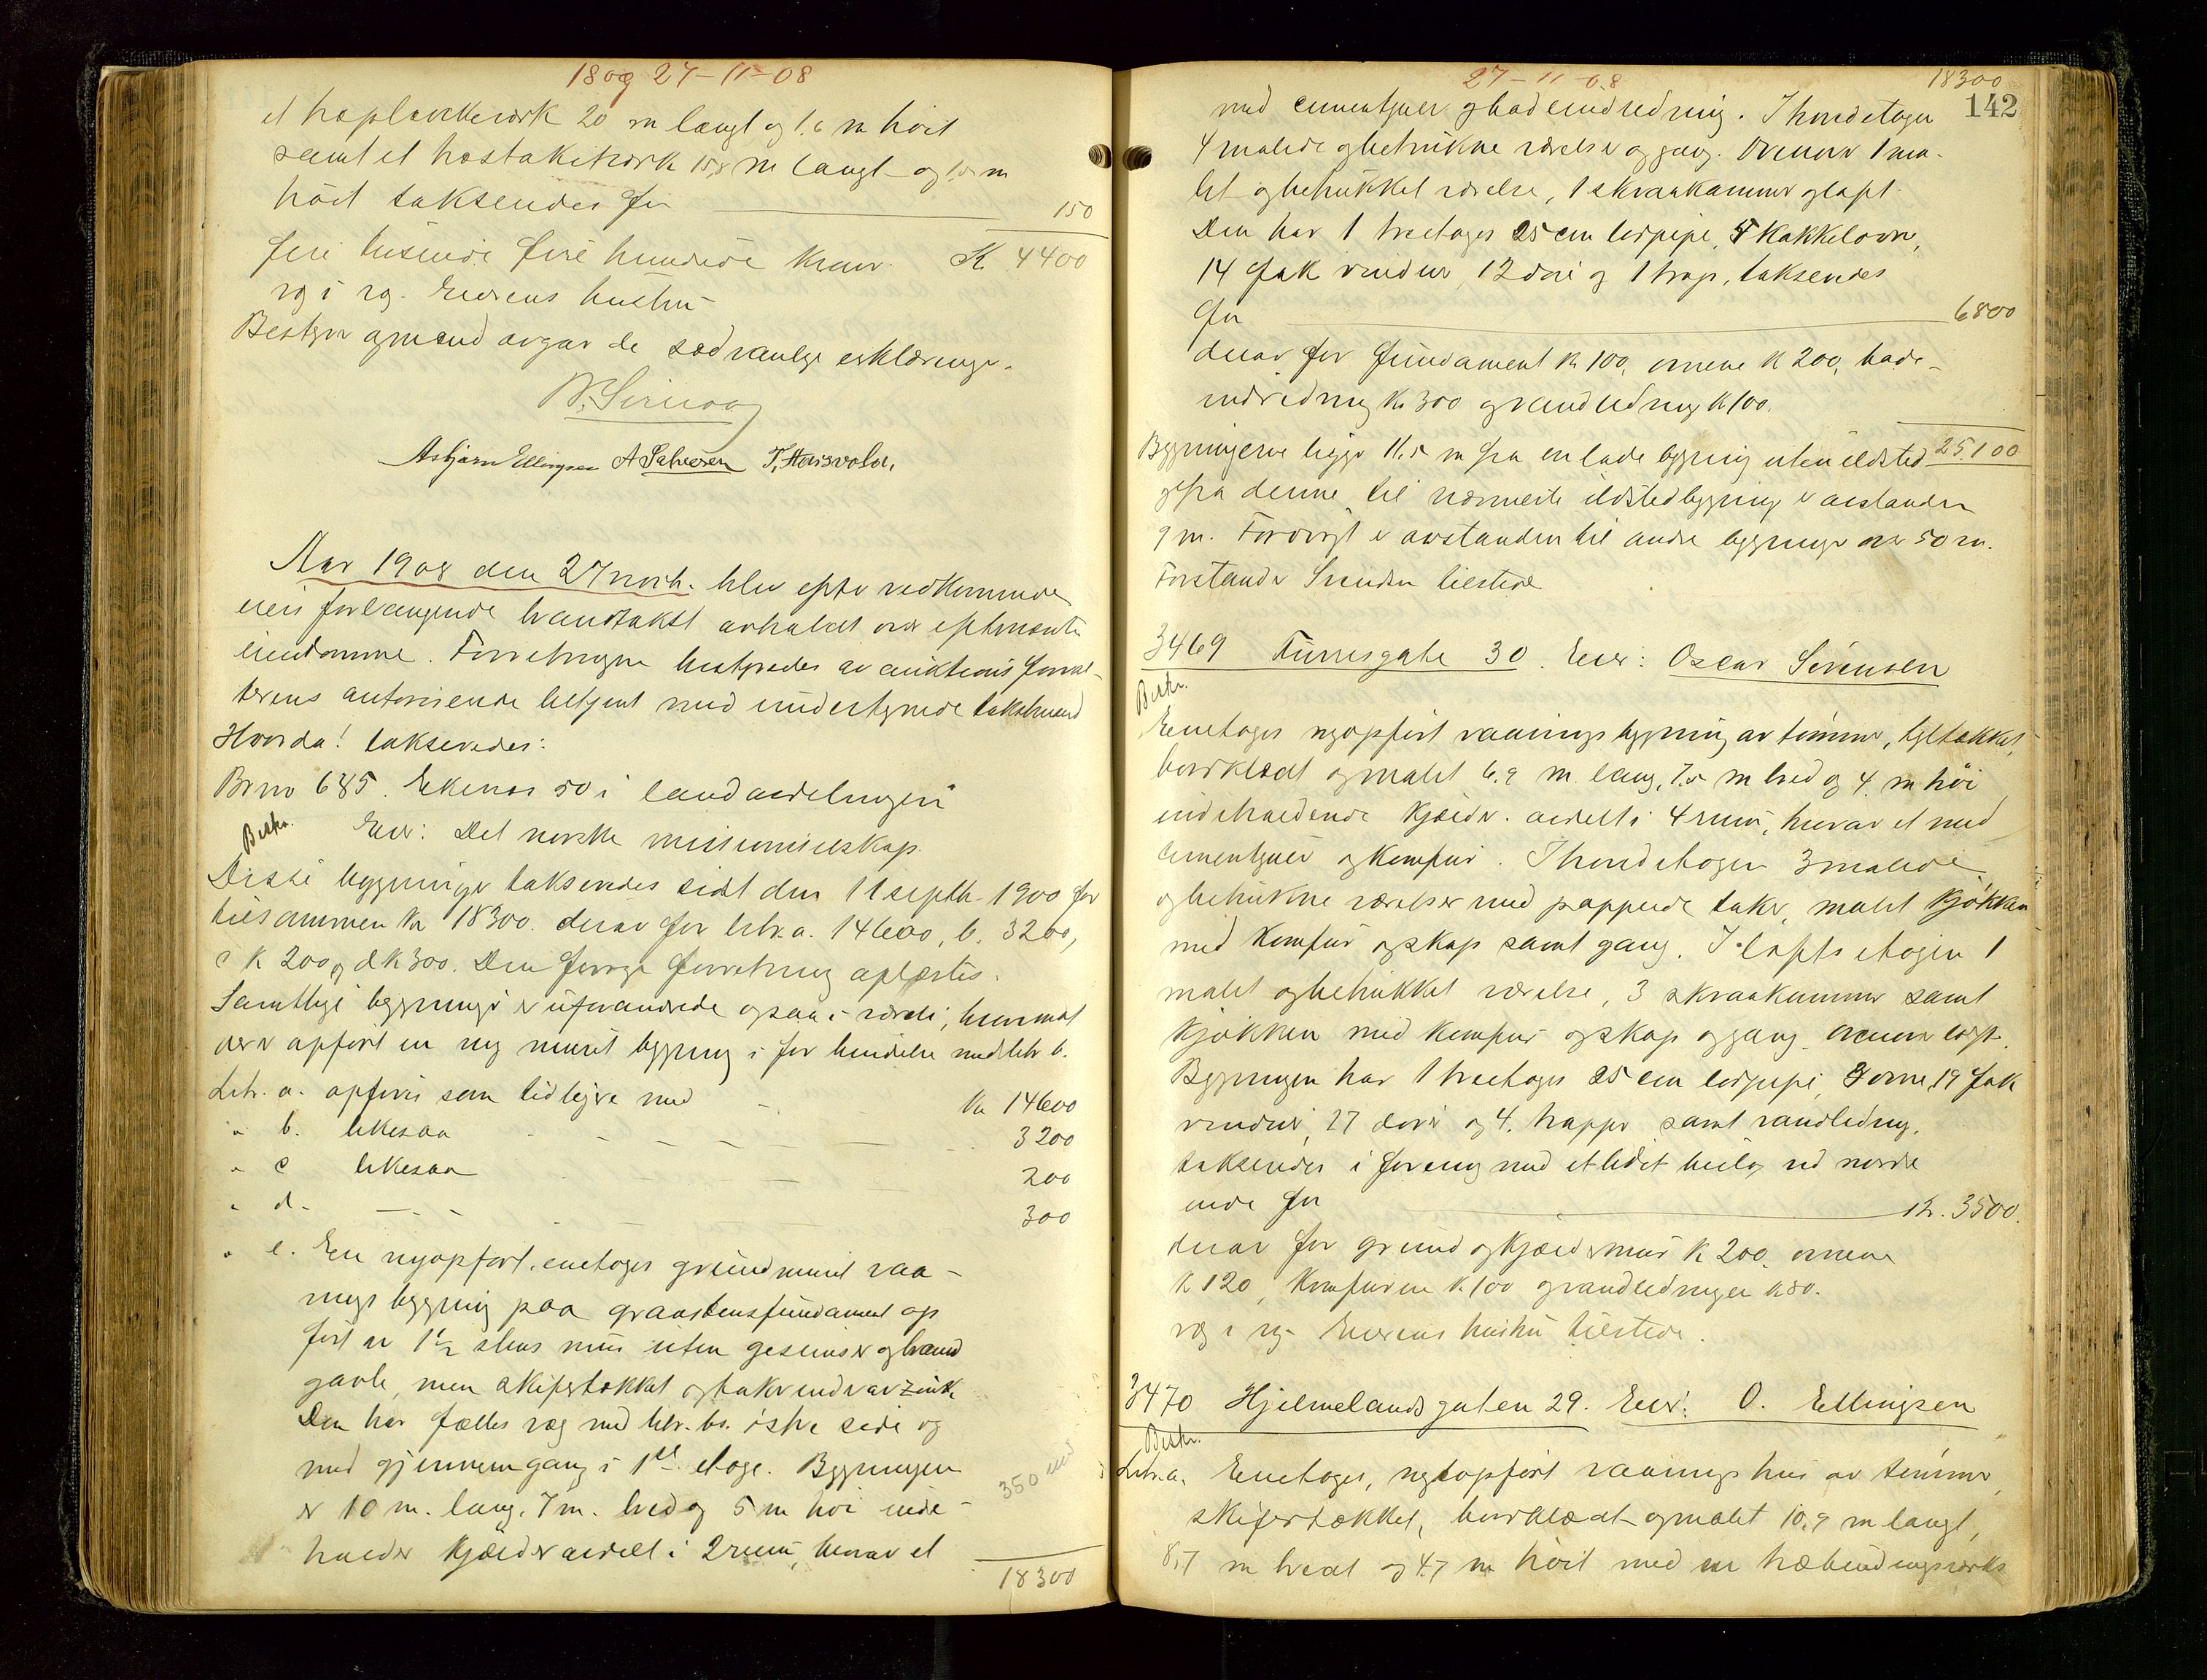 18 og 27-11-08
et træplankeværk 20 m langt og 1.6 m høit
samt et træstakitværk 15,8 m langt og 1.0 m
høit takseredes for 150
fire tusinde fire hundrede kroner. Kr 4400
rg i rg. Eierens hustru
Bestyrer og mænd avgav de sedvanlige erklæringer.
Asbjørn Ellingsen A Salvesen T. Hausvold.
Aar 1908 den 27 novb. blev efter vedkommende
eiers forlangende brandtakst avholdt over efternævnte
eiendomme. Forretningen bestyredes av auktionsforval-
terens autoriserede betjent med undertegnede takstmænd
Hvorda! takseredes:
Brno 685. Ekenes 50 i landavdelingen
Beskr.
Eier: Det norske missionsselskap.
Disse bygninger takseredes sidst den 11 septbr 1900 for
tilsammen kr 18300. derav for litr. a. 14600, b. 3200,
c k 200 og d k 300. Den forrige forretning oplæstes.
Samtlige bygninger er uforandrede ogsaa i værdi, hvorimot
der er opført en ny muret bygning i forbindelse med litr b.
Litr. a. opføres som tidligere med kr 14600
" b. likesaa 3200
" c likesaa 200
" d. 300
" e. En nyopført, enetages grundmuret vaa-
nings bygning paa graastensfundament op
ført av 1 1/2 stens mur uten gesimser og brand
gavle, men skifertækket og takrender av zink
Den har fælles væg med litr. bs. østre side og
med gjennemgang i 1ste etage. Bygningen
er 10 m. lang, 7 m. bred og 5 m høi inde-
holder kjælder avdelt i 2 rum, hvorav et
350 m3
18300
27-11-08
18300
142
med cementgulv og badeindredning. I hovedetagen
4 malede og betrukne værelser og gang. Ovenover 1 ma-
let og betrukket værelse, 1 skraakammer og loft
Den har 1 treetages 25 cm lerpipe, 5 kakkelovne,
14 fak vinduer, 12 døre og 1 trap, takseredes
for 6800
derav for fundament kr 100, ovnene k 200, bade-
indredning kr 300 og vandledning k 100.
25100
Bygningerne ligger 11.5 m fra en lade bygning uten ildsted
og fra denne til nærmeste ildstedbygning er avstanden
9 m. Forøvrigt er avstanden til andre bygninger over 50 m.
Forstander Svendsen tilstede
3469 Funnesgate 30. Eier: Oscar Sørensen
Beskr.
Enetages nyopført vaaningsbygning av tømmer, tegltækket,
bordklædt og malet 6.9 m. lang, 7.5 m bred og 4. m høi
indeholdende kjælder. avdelt i 4 rum, hvorav et med
cementgulv og komfur. I hovedetagen 3 malede
og betrukne værelser med pappede taker, malet kjøkken
med komfur og skap samt gang. I loftsetagen 1
malet og betrukket værelse, 3 skraakammer samt
kjøkken med komfur og skap og gang. ovenover loft.
Bygningen har 1 treetages 25 cm lerpipe, 3 ovne, 19 fak
vinduer, 27 døre og 4. trapper samt vandledning.
takseredes i forening med et lidet bislag ved nordre
ende for kr. 3500.
derav for grund og kjældermur k 200. ovnene
k 120, komfurene k. 100 og vandledningen k 80.
rg i rg. Eierens hustru tilstede.
3470 Hjelmelandsgaten 29. Eier: O. Ellingsen
Beskr.
Litr. a. Enetages, nyopført vaanings hus av tømmer,
skifertækket, bordklædt og malet 10,9 m langt,
8,7 m bredt og 4.7 m høit med en træbindingsverks